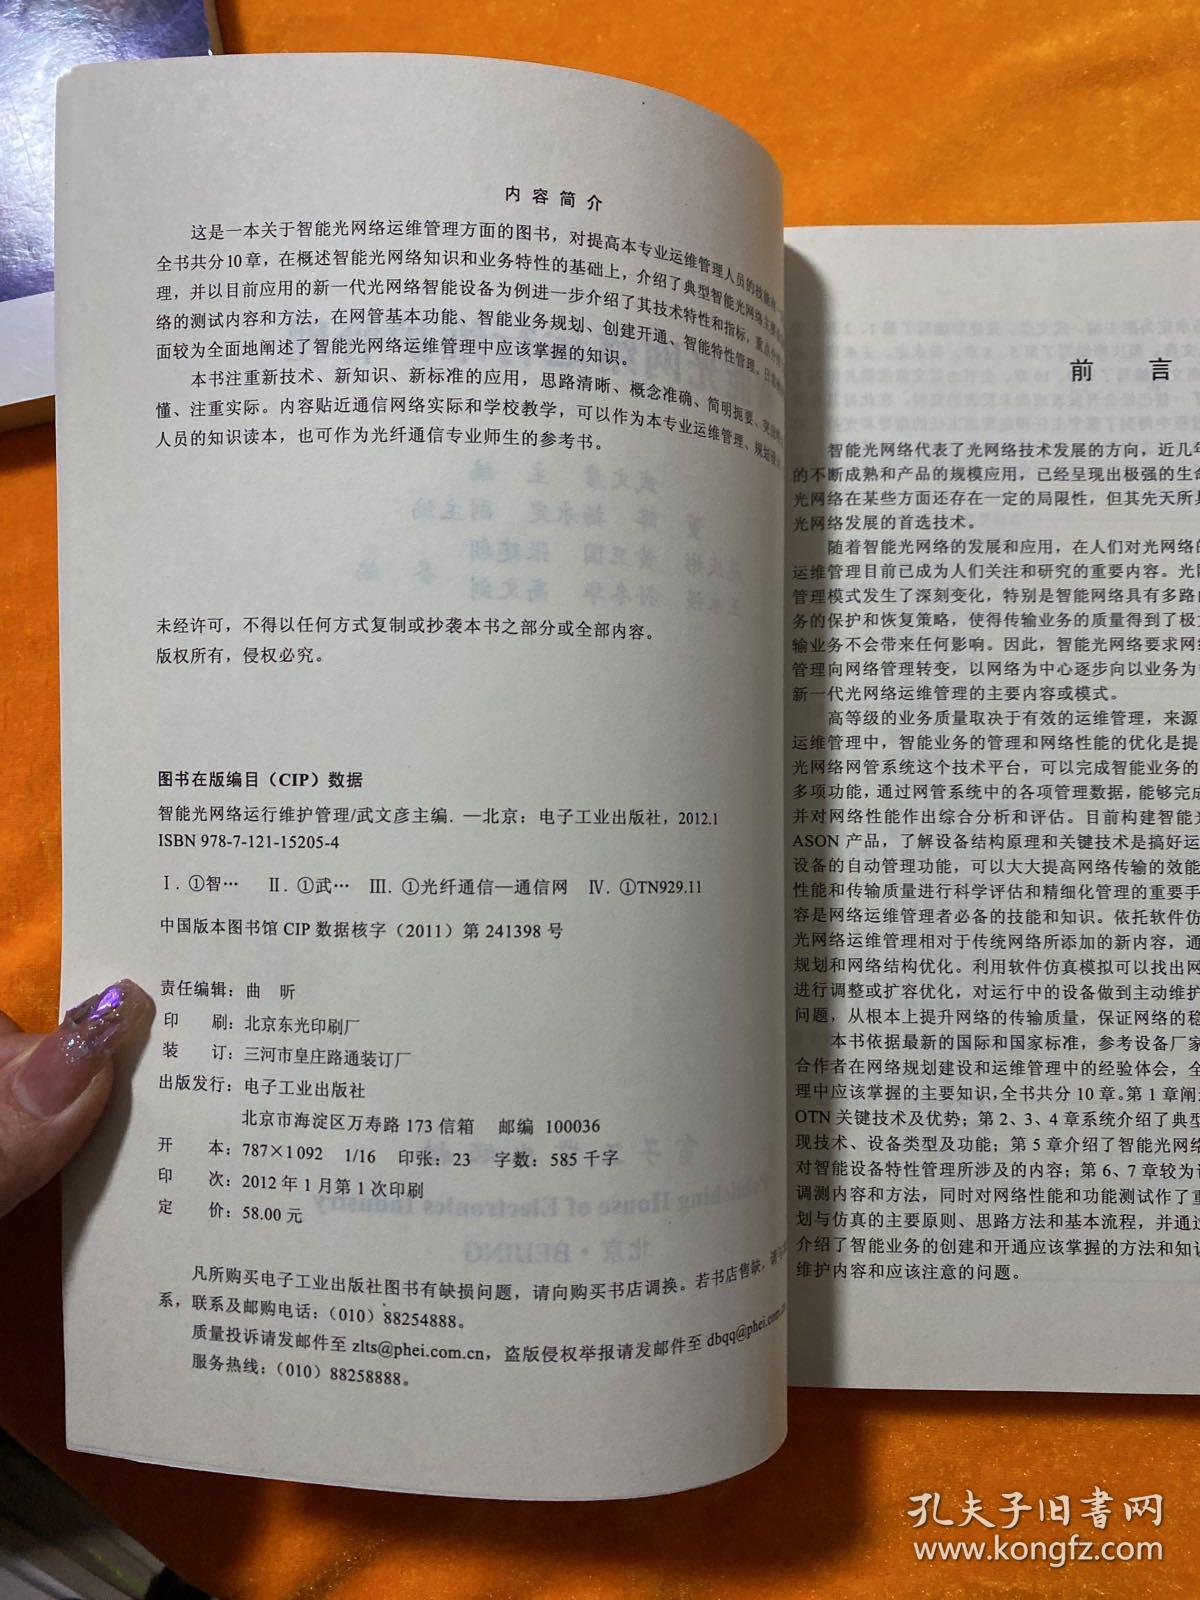 内容简介
这是一本关于智能光网络运维管理方面的图书，对提高本专业运维管理人员的技能
全书共分10章，在概述智能光网络知识和业务特性的基础上，介绍了典型智能光网络主要
理，并以目前应用的新一代光网络智能设备为例进一步介绍了其技术特性和指标，重点
络的测试内容和方法，在网管基本功能、智能业务规划、创建开通、智能特性管理、日常
面较为全面地阐述了智能光网络运维管理中应该掌握的知识。
本书注重新技术、新知识、新标准的应用，思路清晰、概念准确、简明扼要、突出
懂、注重实际。内容贴近通信网络实际和学校教学，可以作为本专业运维管理、规划设计
人员的知识读本，也可作为光纤通信专业师生的参考书。
未经许可，不得以任何方式复制或抄袭本书之部分或全部内容。
版权所有，侵权必究。
图书在版编目（CIP）数据
智能光网络运行维护管理/武文彦主编．—北京：电子工业出版社，2012.1
ISBN 978-7-121-15205-4
Ⅰ．①智…　Ⅱ．①武…　Ⅲ．①光纤通信—通信网　Ⅳ．①TN929.11
中国版本图书馆 CIP 数据核字（2011）第 241398 号
责任编辑：曲　昕
印　　刷：北京东光印刷厂
装　　订：三河市皇庄路通装订厂
出版发行：电子工业出版社
北京市海淀区万寿路 173 信箱　邮编 100036
开　　本：787×1092　1/16　印张：23　字数：585 千字
印　　次：2012 年 1 月第 1 次印刷
定　　价：58.00 元
凡所购买电子工业出版社图书有缺损问题，请向购买书店调换。若书店售缺，请
系，联系及邮购电话：（010）88254888。
质量投诉请发邮件至 zlts@phei.com.cn，盗版侵权举报请发邮件至 dbqq@phei.com.cn
服务热线：（010）88258888。
前　言
智能光网络代表了光网络技术发展的方向，近几年
的不断成熟和产品的规模应用，已经呈现出极强的生命
光网络在某些方面还存在一定的局限性，但其先天所具
光网络发展的首选技术。
随着智能光网络的发展和应用，在人们对光网络的
运维管理目前已成为人们关注和研究的重要内容。光网
管理模式发生了深刻变化，特别是智能网络具有多路由
务的保护和恢复策略，使得传输业务的质量得到了极大
输业务不会带来任何影响。因此，智能光网络要求网络
管理向网络管理转变，以网络为中心逐步向以业务为中
新一代光网络运维管理的主要内容或模式。
高等级的业务质量取决于有效的运维管理，来源
运维管理中，智能业务的管理和网络性能的优化是提
光网络网管系统这个技术平台，可以完成智能业务的
多项功能，通过网管系统中的各项管理数据，能够完成
并对网络性能作出综合分析和评估。目前构建智能光
ASON 产品，了解设备结构原理和关键技术是搞好运
设备的自动管理功能，可以大大提高网络传输的效能
性能和传输质量进行科学评估和精细化管理的重要手
容是网络运维管理者必备的技能和知识。依托软件仿
光网络运维管理相对于传统网络所添加的新内容，通
规划和网络结构优化。利用软件仿真模拟可以找出网
进行调整或扩容优化，对运行中的设备做到主动维护
问题，从根本上提升网络的传输质量，保证网络的稳
本书依据最新的国际和国家标准，参考设备厂家
合作者在网络规划建设和运维管理中的经验体会，全
理中应该掌握的主要知识，全书共分 10 章。第 1 章阐
OTN 关键技术及优势；第 2、3、4 章系统介绍了典型
现技术、设备类型及功能；第 5 章介绍了智能光网络
对智能设备特性管理所涉及的内容；第 6、7 章较为详
调测内容和方法，同时对网络性能和功能测试作了重
划与仿真的主要原则、思路方法和基本流程，并通过
介绍了智能业务的创建和开通应该掌握的方法和知识
维护内容和应该注意的问题。
孔夫子旧书网
www.kongfz.com